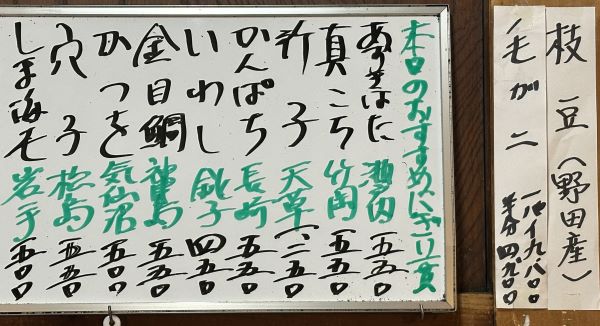 枝豆(野田産)
毛ガニ 一パイ 九、八〇〇
半分 四、九〇〇
本日のおすすめにぎり一貫
あずきはた 瀬戸内 五五〇
真こち 竹岡 五五〇
新子 天草
かんぱち 長崎 五五〇
いわし 銚子 四五〇
金目鯛 神津島 五五〇
かつを 気仙沼 五〇〇
穴子 松島 五五〇
しま海老 岩手 五〇〇